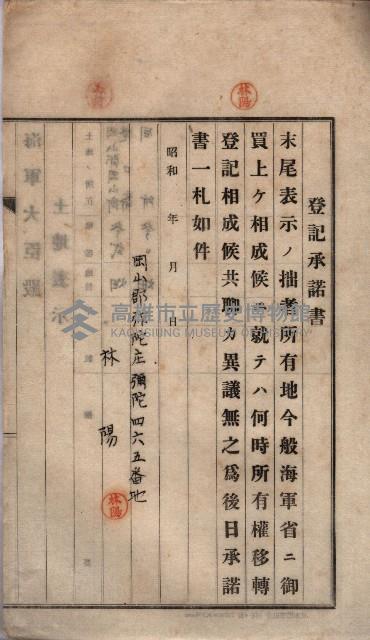 登記承諾書
末尾表示ノ拙者所有地今般海軍省ニ御
買上ケ相成候ニ就テハ何時所有權移轉
登記相成候共聊カ異議無之為後日承諾
書一札如件
昭和　年　月　日
岡山郡彌陀庄彌陀四六五番地
林陽
林陽
林陽
土地表示
海軍大臣殿
高雄市立歷史博物館
KAOHSIUNG MUSEUM OF HISTORY